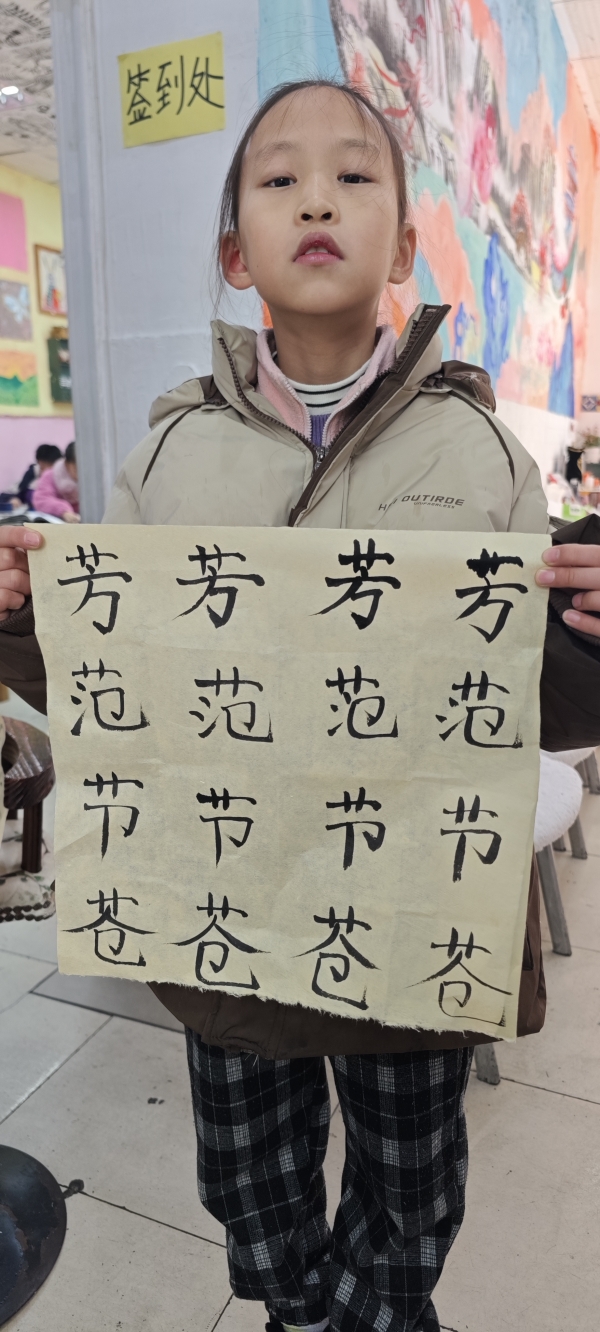 签到处
OUTIRDE
芳芳芳芳
范范范范
节节节节
苍苍苍苍